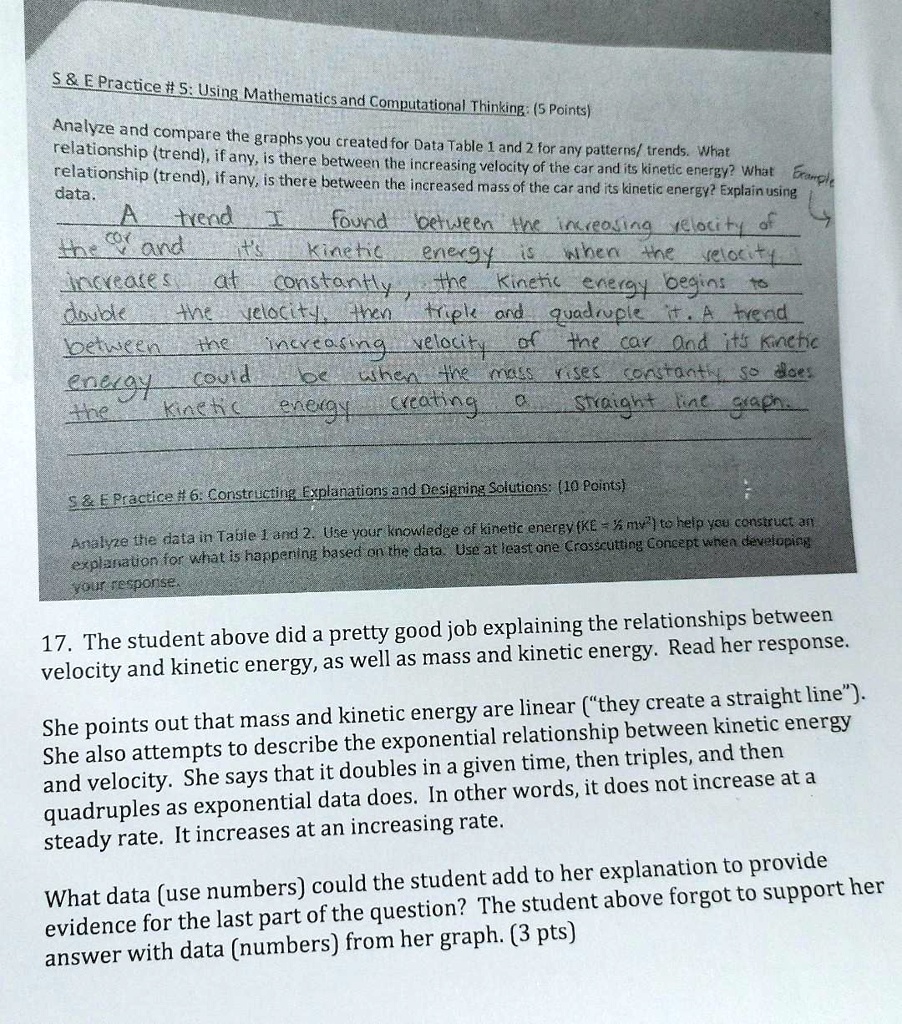 S & E Practice # 5: Using Mathematics and Computational Thinking: (5 Points)
Analyze and compare the graphs you created for Data Table 1 and 2 for any patterns/ trends. What
relationship (trend), if any, is there between the increasing velocity of the car and its kinetic energy? What
relationship (trend), if any, is there between the increased mass of the car and its kinetic energy? Explain using
data.
Example
A trend I found between the increasing velocity of
the car and it's kinetic energy is when the velocity
increases at constantly, the kinetic energy begins to
double the velocity, then triple and quadruple it. A trend
between the increasing velocity of the car and it's kinetic
energy could be when the mass rises constantly so does
the kinetic energy creating a straight line graph.
S & E Practice # 6: Constructing Explanations and Designing Solutions: (10 Points)
Analyze the data in Table 1 and 2. Use your knowledge of kinetic energy (KE = ½ mv²) to help you construct an
explanation for what is happening based on the data. Use at least one Crosscutting Concept when developing
your response.
17. The student above did a pretty good job explaining the relationships between
velocity and kinetic energy, as well as mass and kinetic energy. Read her response.
She points out that mass and kinetic energy are linear (“they create a straight line”).
She also attempts to describe the exponential relationship between kinetic energy
and velocity. She says that it doubles in a given time, then triples, and then
quadruples as exponential data does. In other words, it does not increase at a
steady rate. It increases at an increasing rate.
What data (use numbers) could the student add to her explanation to provide
evidence for the last part of the question? The student above forgot to support her
answer with data (numbers) from her graph. (3 pts)